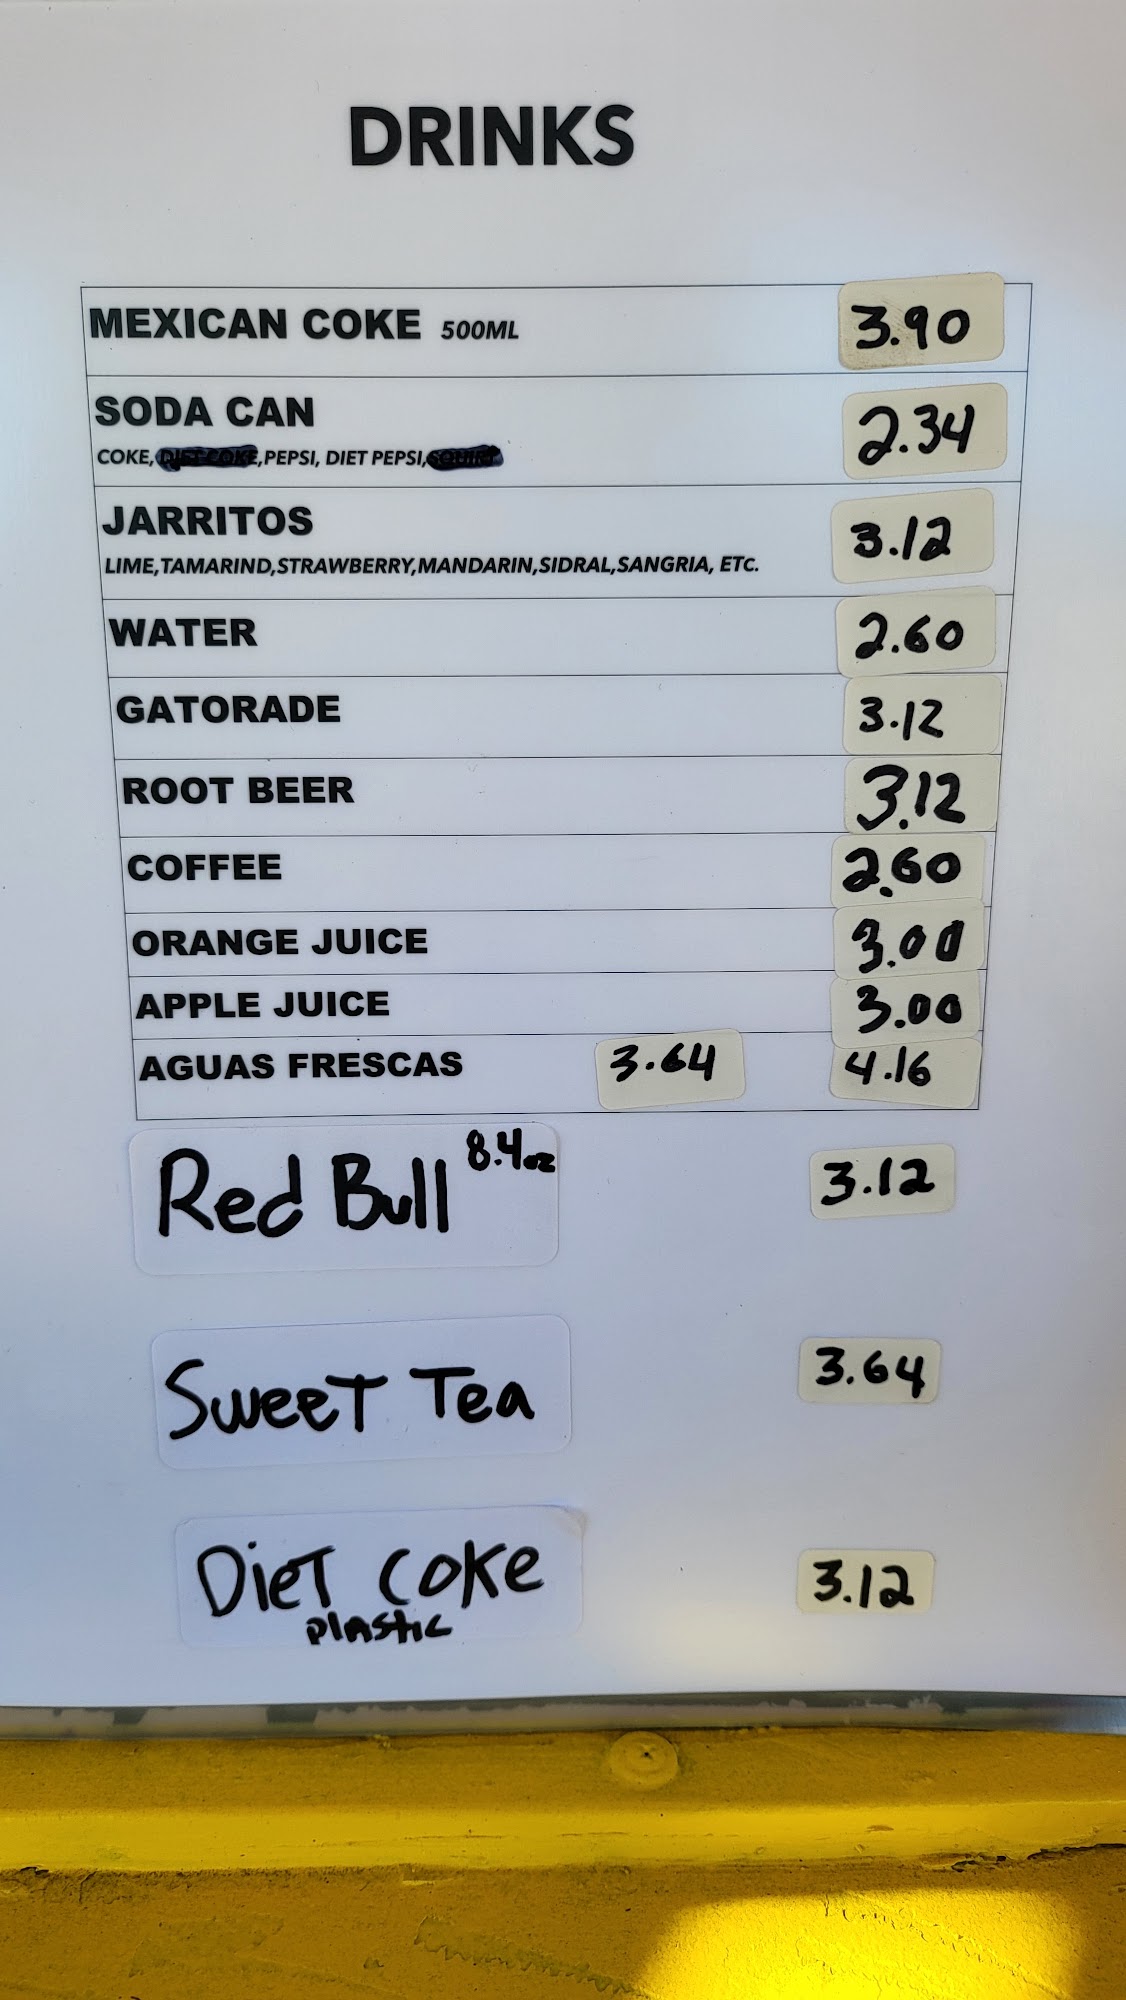 DRINKS
MEXICAN COKE 500ML 3.90
SODA CAN 2.34
COKE, DIET COKE, PEPSI, DIET PEPSI, SQUIRT
JARRITOS 3.12
LIME,TAMARIND,STRAWBERRY,MANDARIN,SIDRAL,SANGRIA, ETC.
WATER 2.60
GATORADE 3.12
ROOT BEER 3.12
COFFEE 2.60
ORANGE JUICE 3.00
APPLE JUICE 3.00
AGUAS FRESCAS 3.64 4.16
Red Bull 8.4oz 3.12
Sweet Tea 3.64
Diet Coke 3.12
plastic